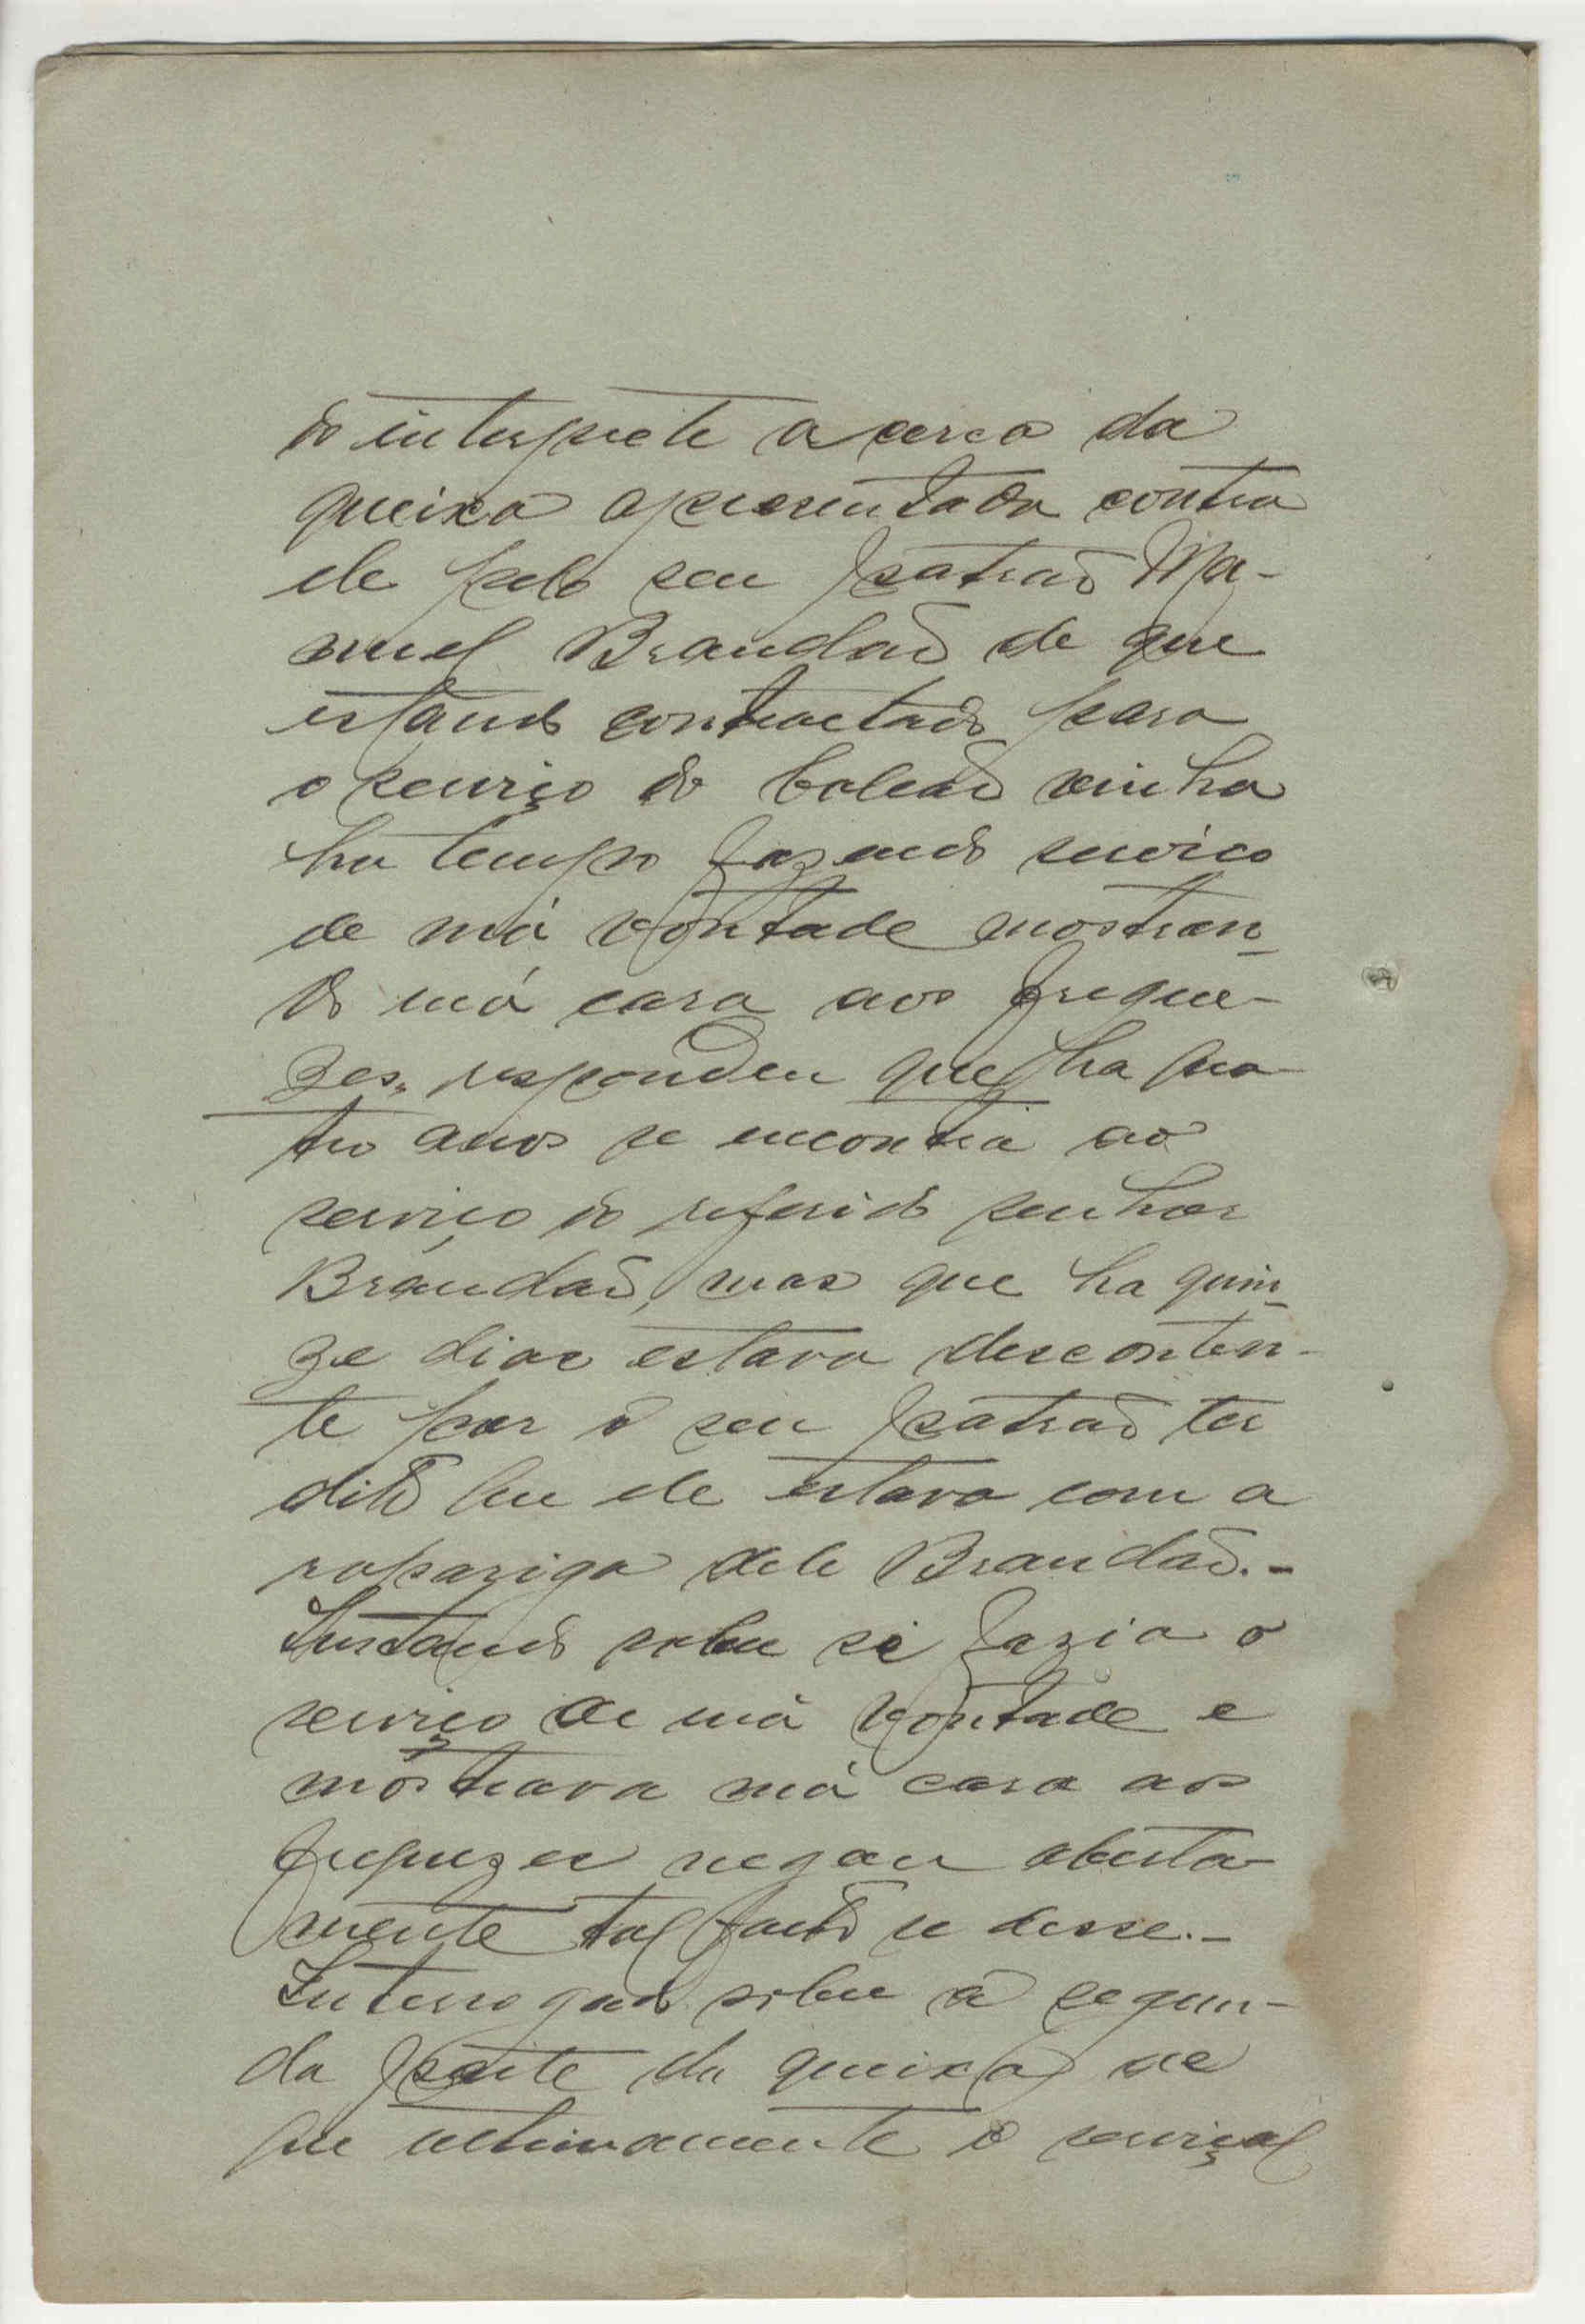 do interprete a cerca da
queixa apresentada contra
ele pelo seu patraõ Ma-
nuel Brandaõ de que
estando contractado para
o serviço do balcaõ vinha
ha tempo fazendo serviço
de má vontade mostran-
do má cara aos fregue-
zes, respondeu que ha qua
tro anos se encontra ao
serviço do referido senhor
Brandaõ, mas que ha quin-
ze dias estava desconten-
te por o seu patraõ ter
dito que ele estava com a
rapariga dele Brandaõ.-
Instando sobre si fazia o
serviço de má vontade e
mostrava má cara aos
freguezes negou aberta-
mente tal facto se desse.-
Interrogado sobre a segun-
da parte da queixa de
que ultimamente o serviçal